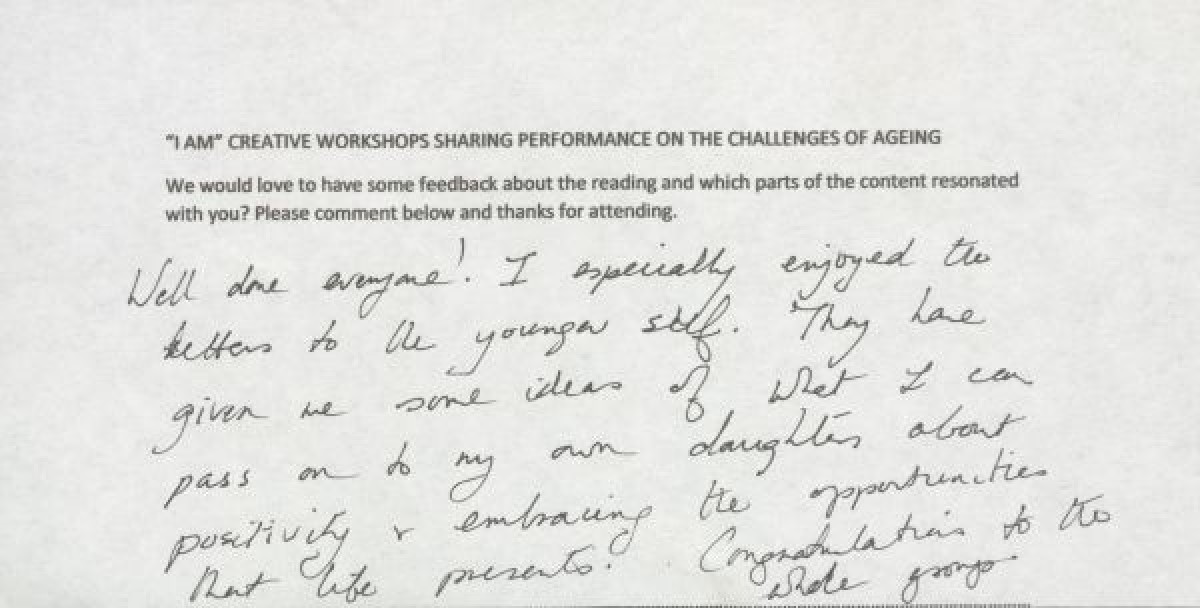 "I AM" CREATIVE WORKSHOPS SHARING PERFORMANCE ON THE CHALLENGES OF AGEING
We would love to have some feedback about the reading and which parts of the content resonated
with you? Please comment below and thanks for attending.
Well done everyone! I especially enjoyed the
letters to the younger self. They have
given me some ideas of what I can
pass on to my own daughters about
positivity & embracing the opportunities
that life presents. Congratulations to the
whole group